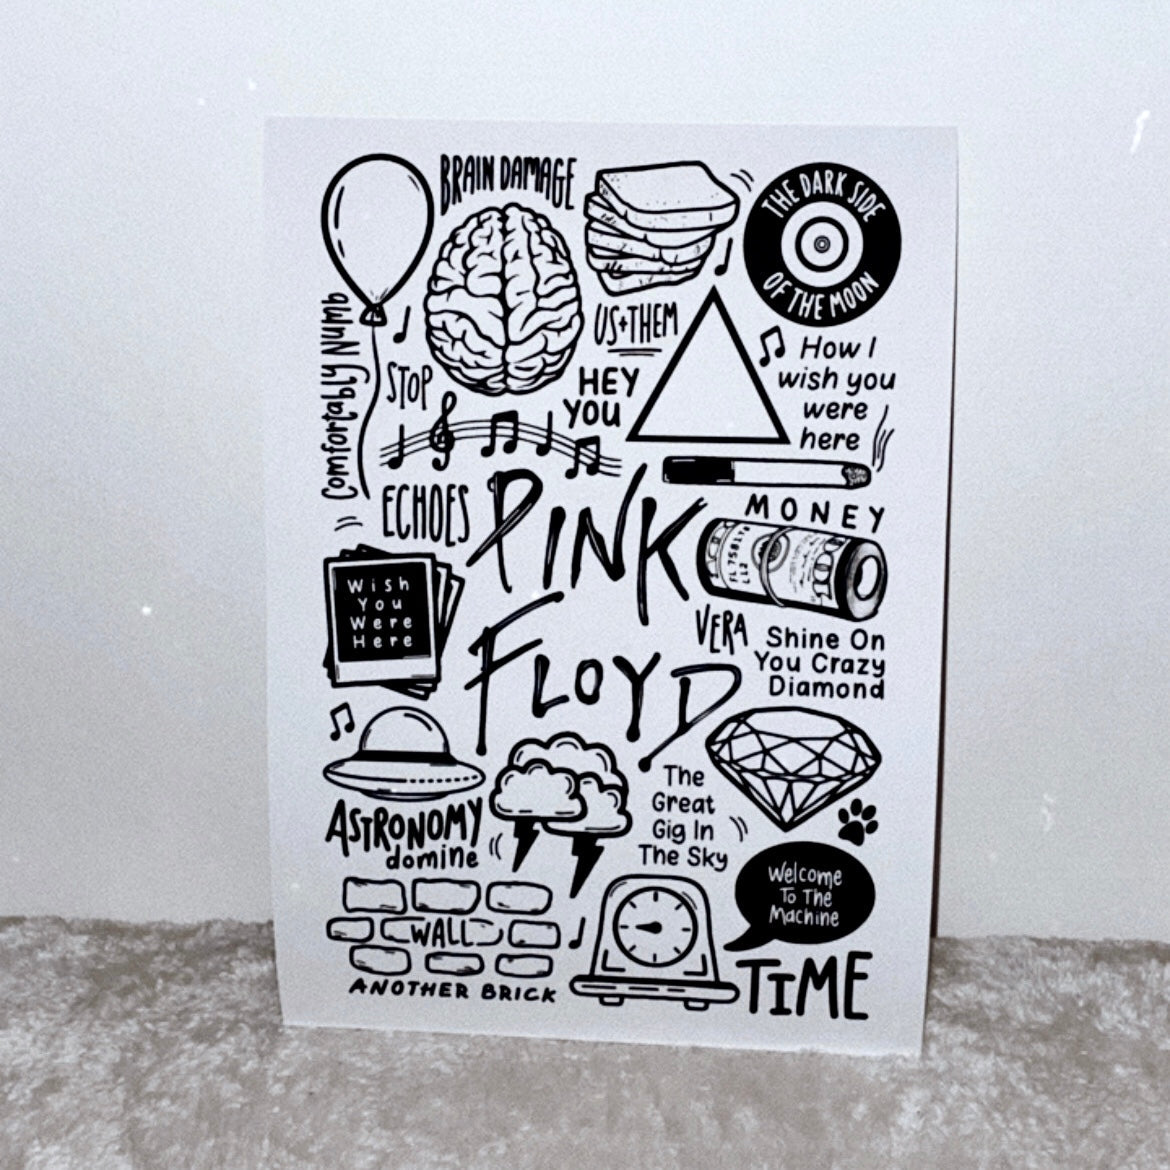 BRAIN DAMAGE
THE DARK SIDE
OF THE MOON
Comfortably Numb
US+THEM
STOP
HEY
YOU
How I
wish you
were
here
ECHOES
PINK
FLOYD
MONEY
FL 7581
L12
100
Wish
You
Were
Here
VERA
Shine On
You Crazy
Diamond
ASTRONOMY
domine
The
Great
Gig In
The Sky
Welcome
To The
Machine
WALL
ANOTHER BRICK
TIME